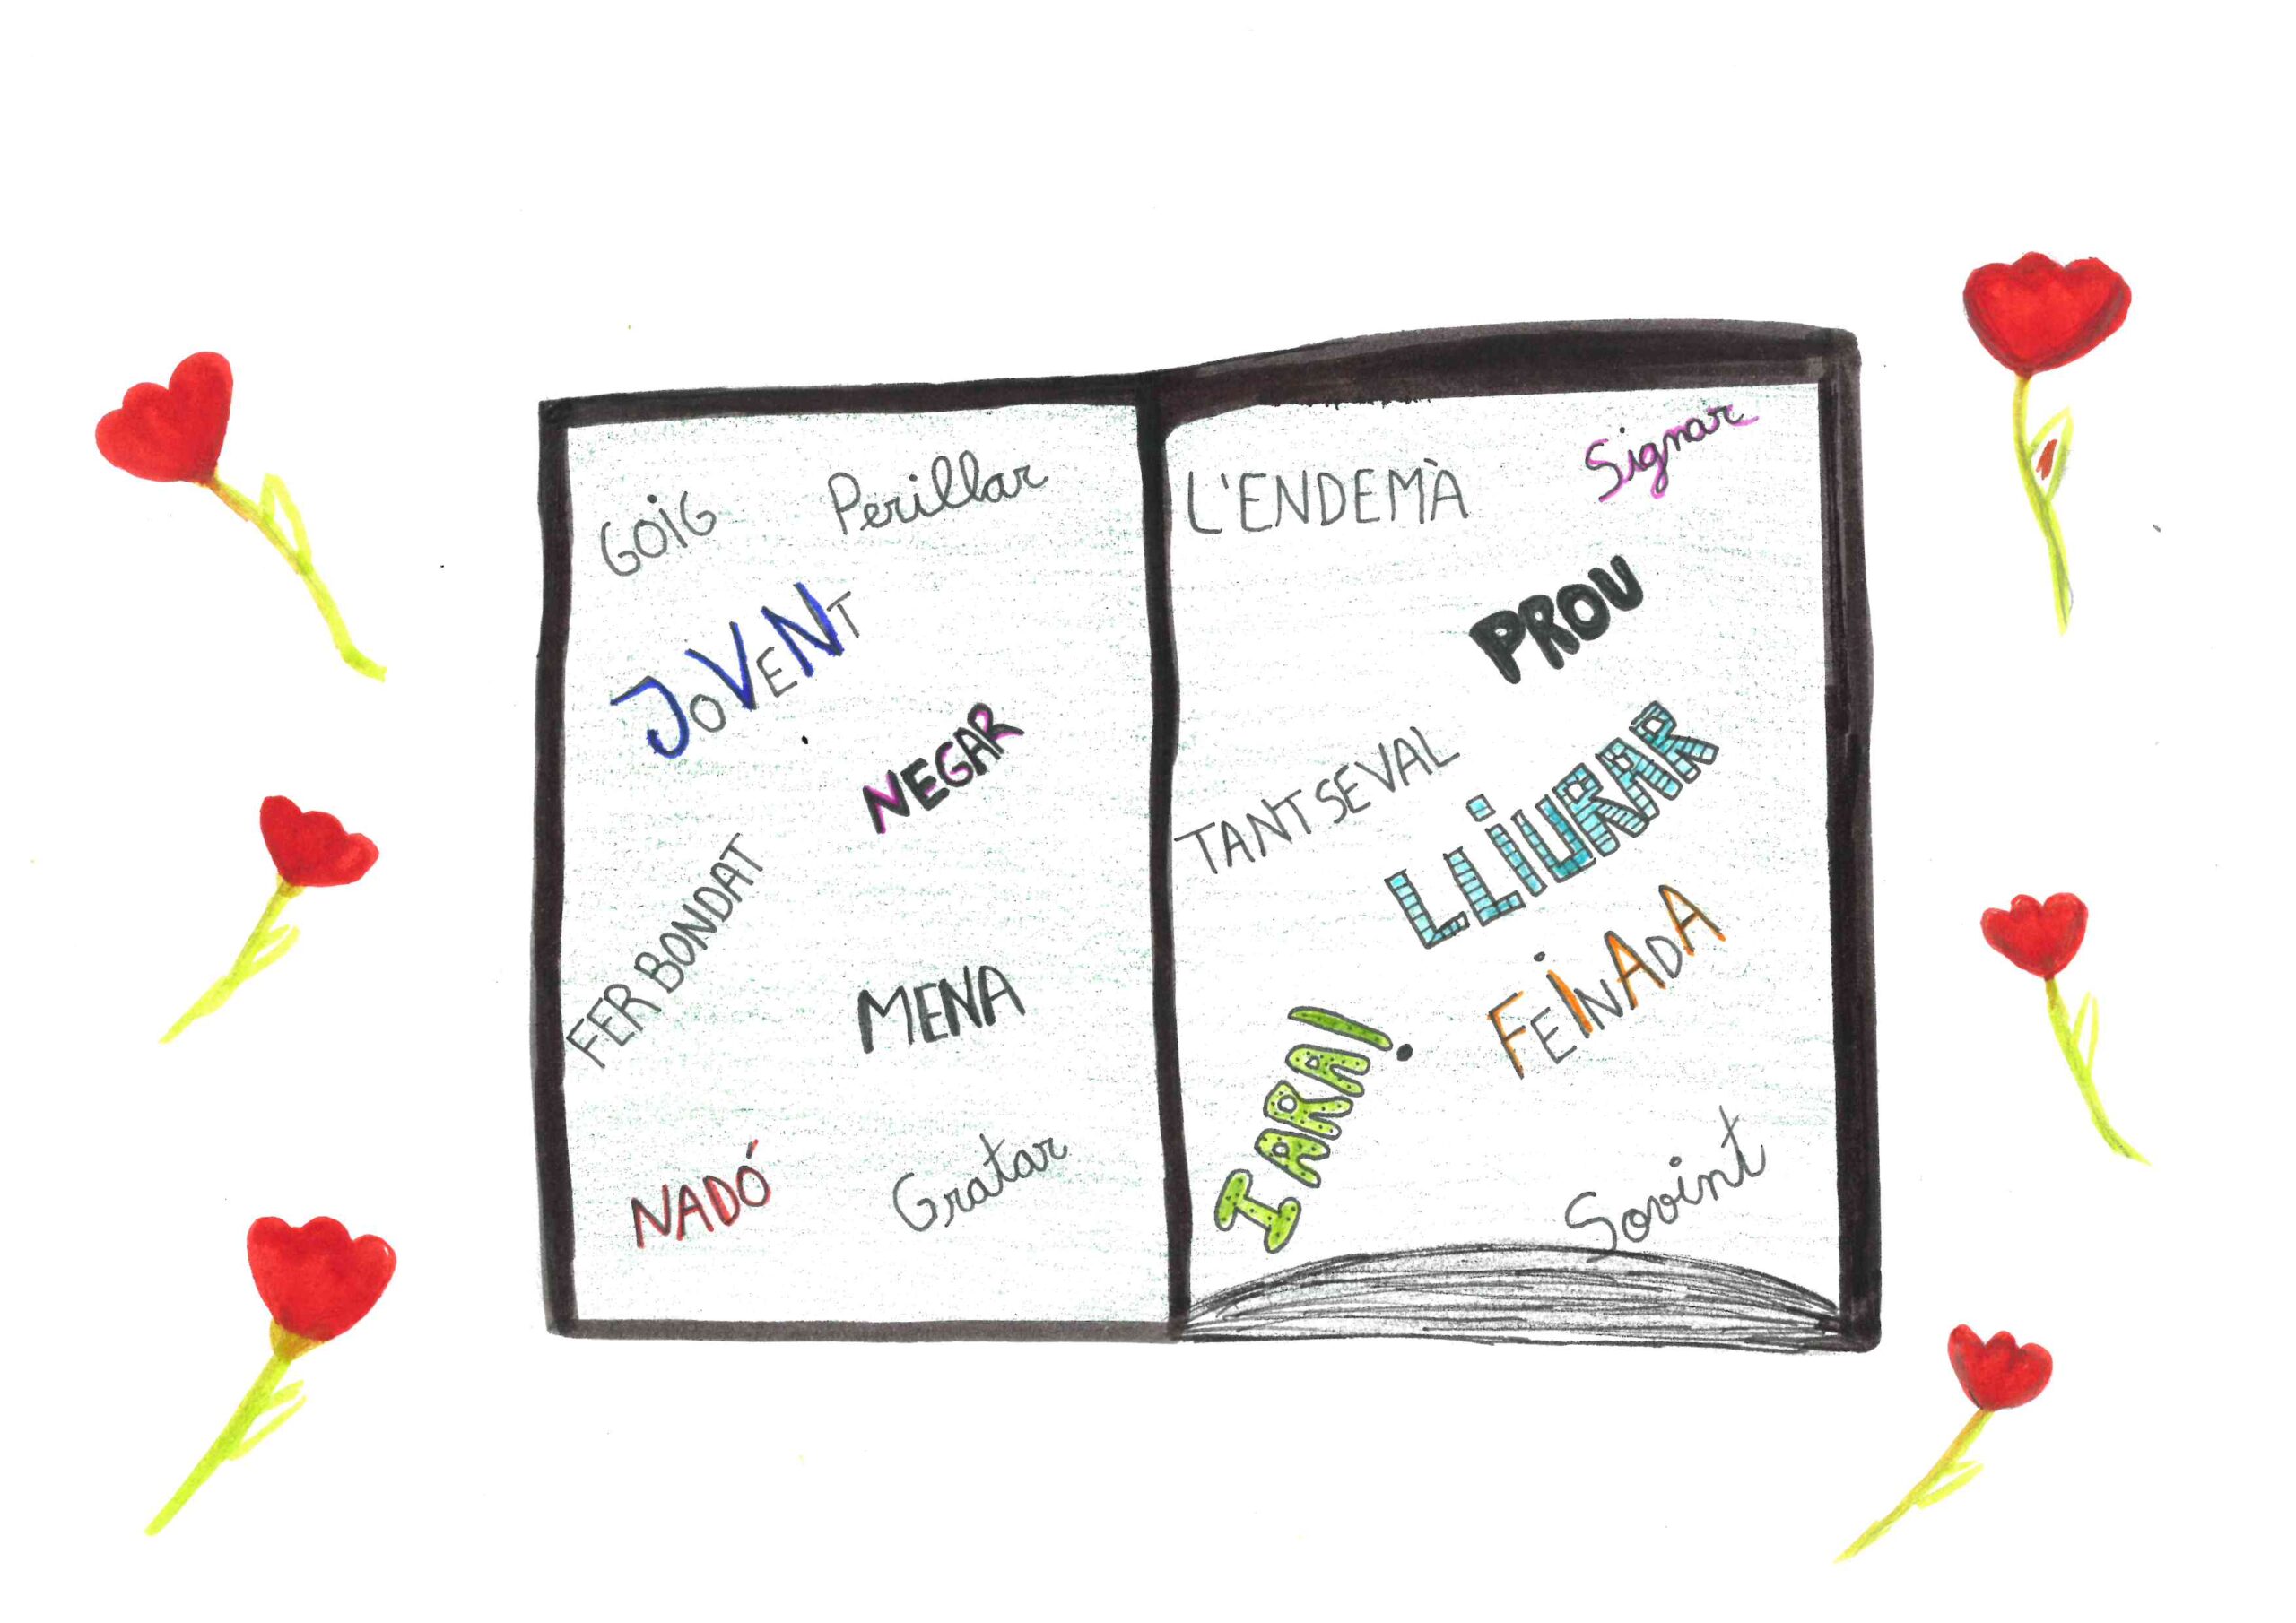 GOiG
Perillar
JoVeNT
NEGAR
FER BONDAT
MENA
NADÓ
Gratar
L'ENDEMÀ
Signar
PROU
TANT SE VAL
LLiURAR
FEiNADA
I ARA!
Sovint